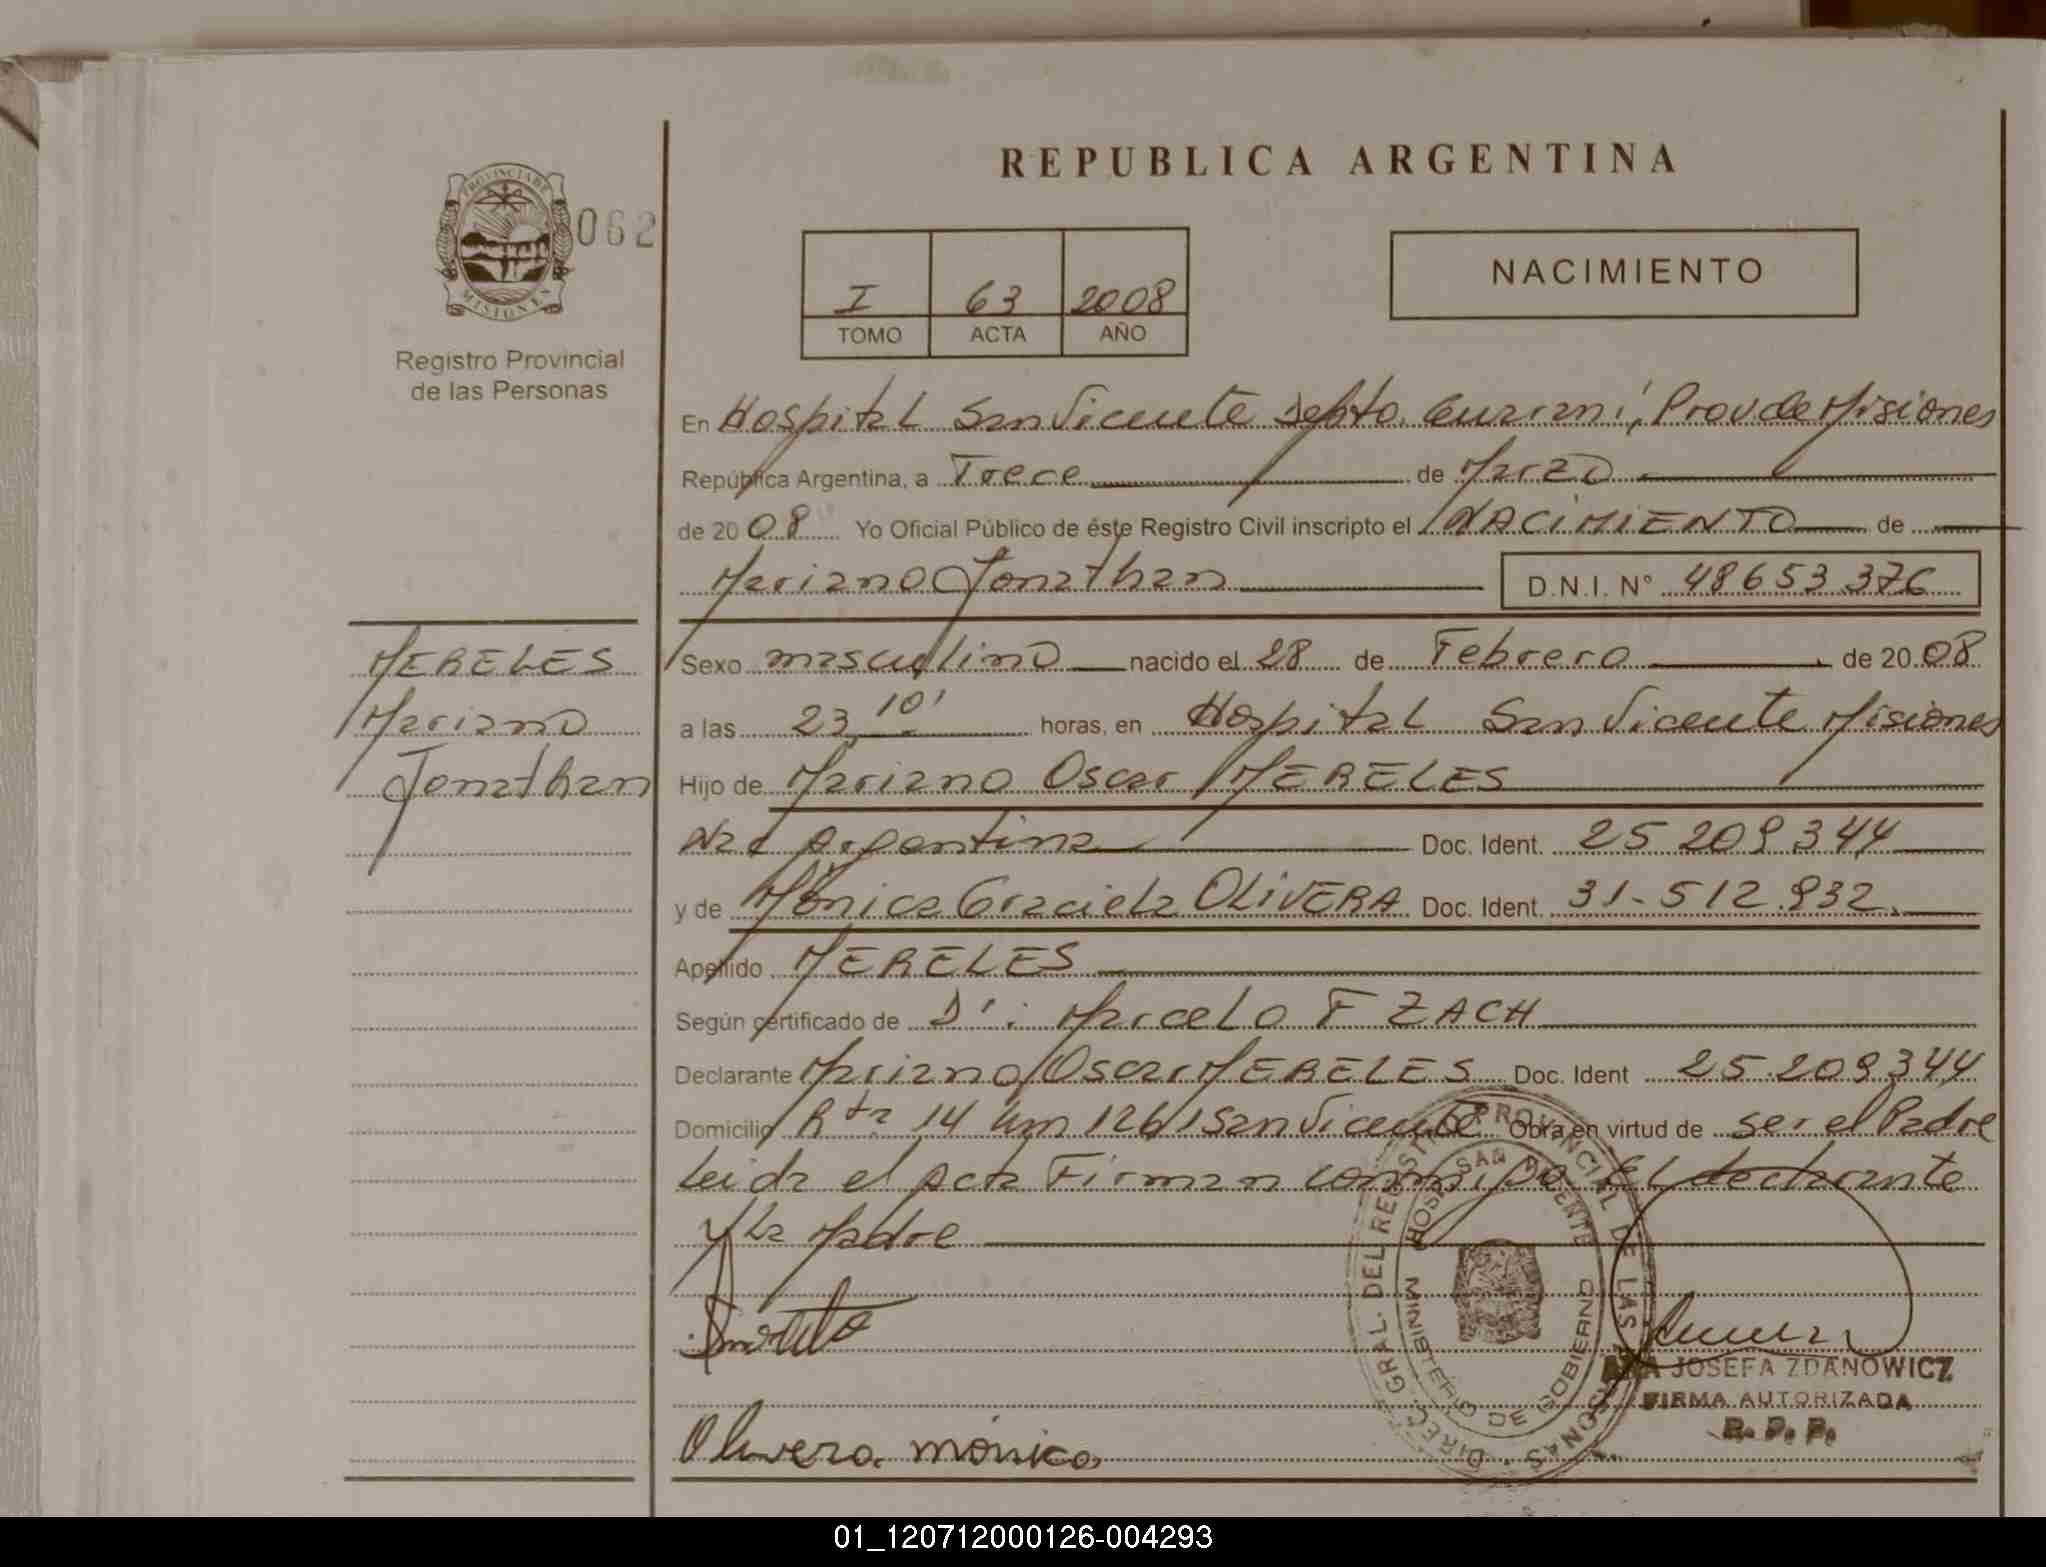 REPUBLICA ARGENTINA
PROVINCIA DE
MISIONES
062
Registro Provincial
de las Personas
I 63 2008
TOMO ACTA AÑO
NACIMIENTO
En Hospital San Vicente Depto. Guaraní, Prov de Misiones
República Argentina, a Trece de Marzo
de 2008 Yo Oficial Público de éste Registro Civil inscripto el NACIMIENTO de
Mariano Jonathan D.N.I. N° 48653376
MERELES
Mariano
Jonathan
Sexo masculino nacido el 28 de Febrero de 2008
a las 23,10' horas, en Hospital San Vicente Misiones
Hijo de Mariano Oscar MERELES
Nac Argentina Doc. Ident. 25 209 344
y de Mónica Graciela OLIVERA Doc. Ident. 31-512.932
Apellido MERELES
Según certificado de Dr: Marcelo F ZACH
Declarante Mariano Oscar MERELES Doc. Ident 25.209 344
Domicilio Rta 14 Km 1261 San Vicente Obra en virtud de ser el Padre
Leida el Acta Firman conmigo El declarante
y La Madre
DIREC. GRAL. DEL REGISTRO PROVINCIAL DE LAS PERSONAS
HOSP. SAN VICENTE
MINISTERIO DE GOBIERNO
ANA JOSEFA ZDANOWICZ
FIRMA AUTORIZADA
R. P. P.
Olivera mónica
01_120712000126-004293